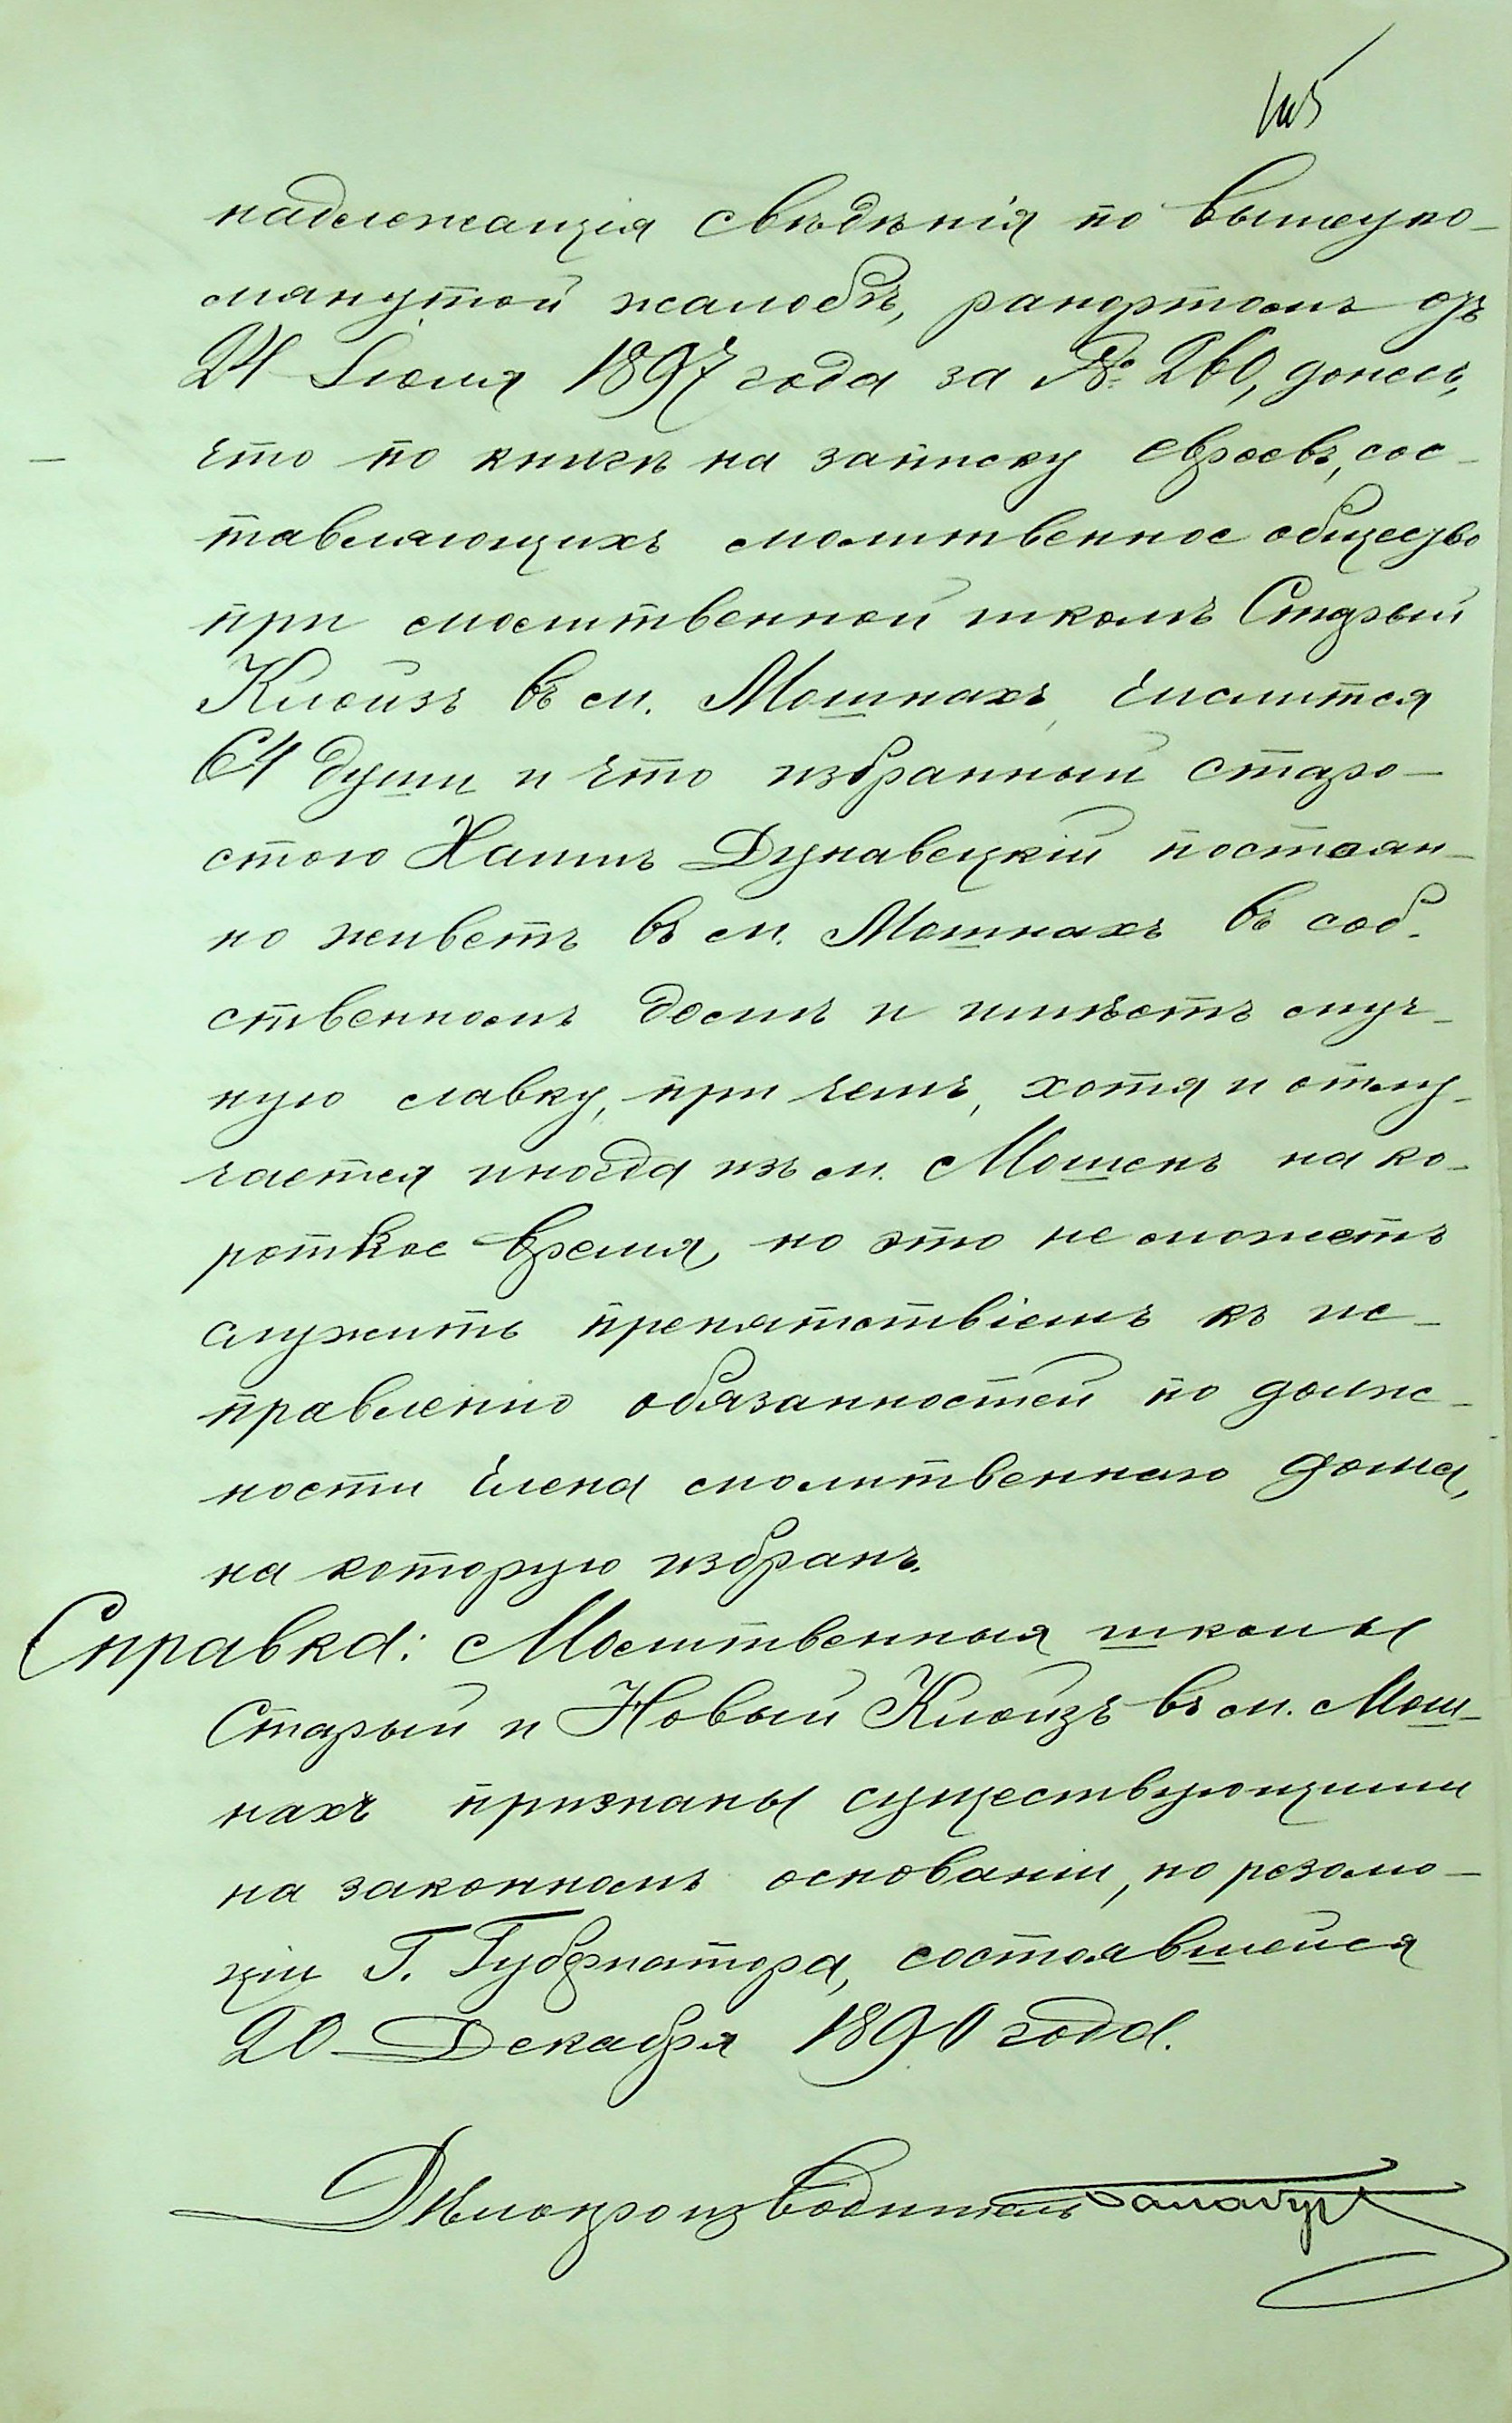 надлежащія свѣдѣнія по вышеупо-
мянутой жалобѣ, рапортомъ отъ
24 Іюля 1897 года за № 260, донесъ,
что по книгѣ на записку евреевъ, сос-
тавляющихъ молитвенное общество
при молитвенной школѣ Старый
Клюйзъ въ м. Мошнахъ, числится
64 души и что избранный старо-
стою Хаимъ Дунавецкій постоян-
но живетъ въ м. Мошнахъ въ соб-
ственномъ домѣ и имѣетъ муч-
ную лавку, при чемъ, хотя и отлу-
чается иногда изъ м. Мошенъ на ко-
роткое время, но это не можетъ
служить препятствіемъ къ ис-
правленію обязанностей по долж-
ности члена молитвеннаго дома,
на которую избранъ.
Справка: Молитвенныя школы
Старый и Новый Клюйзъ въ м. Мош-
нахъ признаны существующими
на законномъ основаніи, по резолю-
ціи Г. Губернатора, состоявшейся
20 Декабря 1890 года.
Дѣлопроизводитель